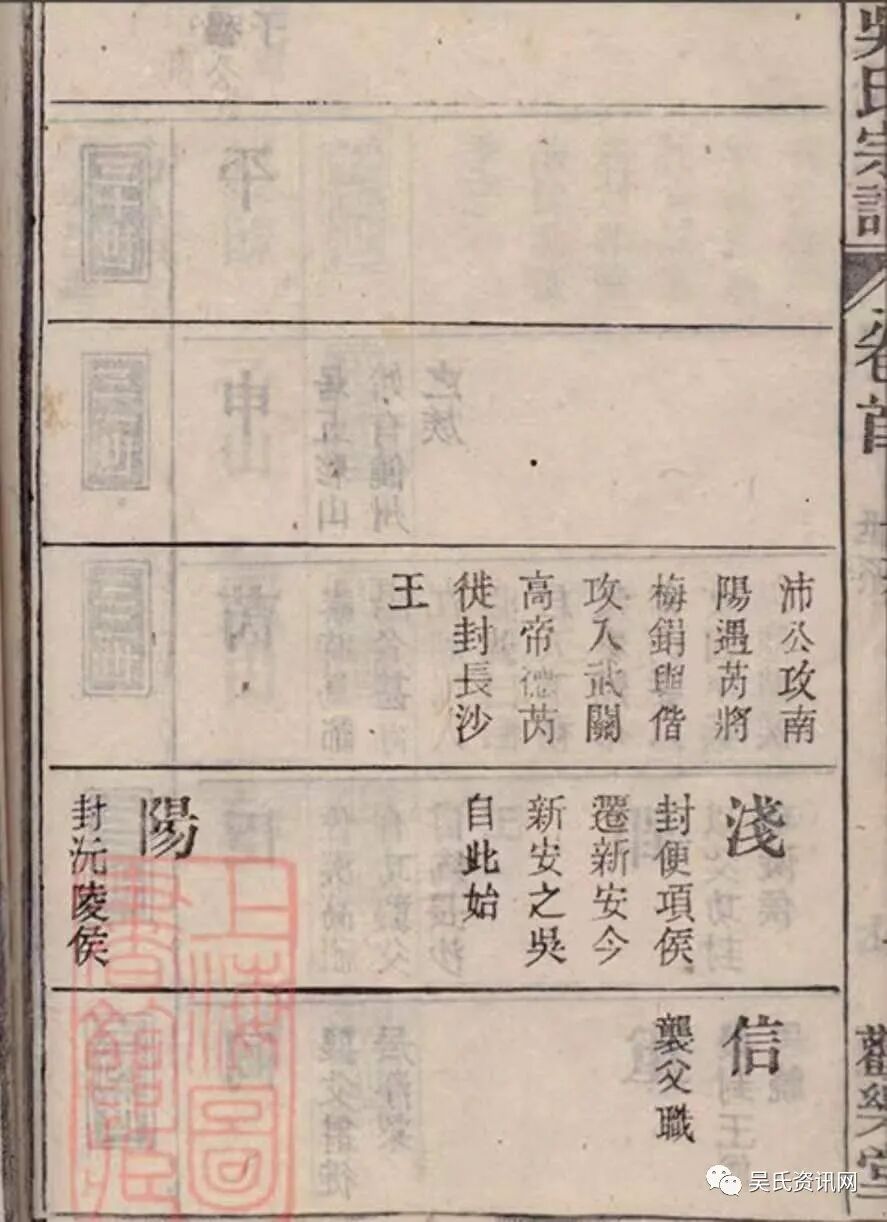 吳氏宗譜
卷首
沛公攻南
陽遇芮將
梅鋗與偕
攻入武關
高帝德芮
徙封長沙
王
淺
封便項侯
遷新安今
新安之吳
自此始
陽
封沅陵侯
信
襲父職
上海圖
書館藏
吴氏资讯网